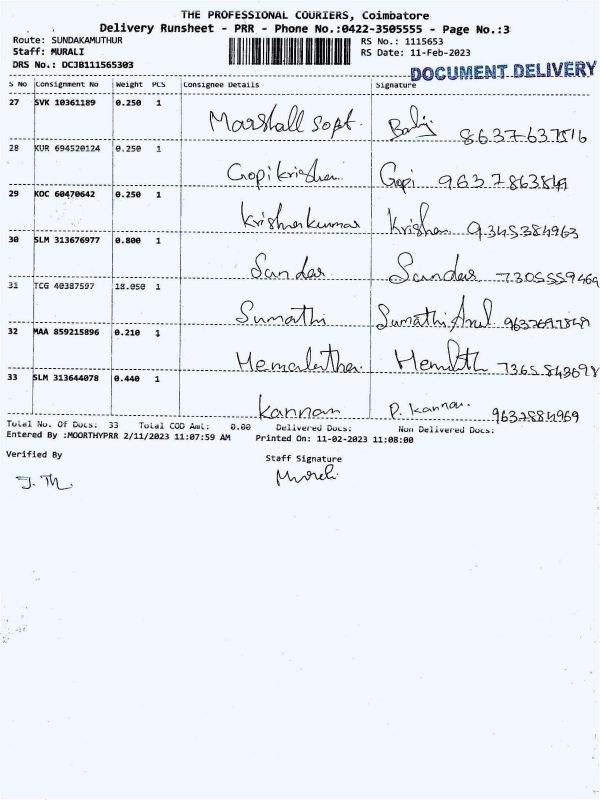 THE PROFESSIONAL COURIERS, Coimbatore
Delivery Runsheet - PRR - Phone No.:0422-3505555 - Page No.:3
Route: SUNDAKAMUTHUR RS No.: 1115653
Staff: MURALI RS Date: 11-Feb-2023
DRS No.: DC3B111565303
DOCUMENT DELIVERY
S No Consignment No Weight PCS Consignee Details Signature
27 SVK 10361189 0.250 1
Marshall sopt. Balij 8637637516
28 KUR 694520124 0.250 1
Gopikrishan. Gopi
29 KOC 60470642 0.250 1
Krishnakumar Krishna 9345384963
30 SLM 313676977 0.800 1
Sundar Sundar 7305559469
31 TCG 40387597 18.050 1
Sumathi Sumathi
32 MAA 859215896 0.210 1
Hemalatha. 7365843698
33 SLM 313644078 0.440 1
Kannan P. Kannan. 9637884969
Total No. Of Docs: 33 Total COD Amt: 0.00 Delivered Docs: Non Delivered Docs:
Entered By :MOORTHYPRR 2/11/2023 11:07:59 AM Printed On: 11-02-2023 11:08:00
Verified By Staff Signature
Murali